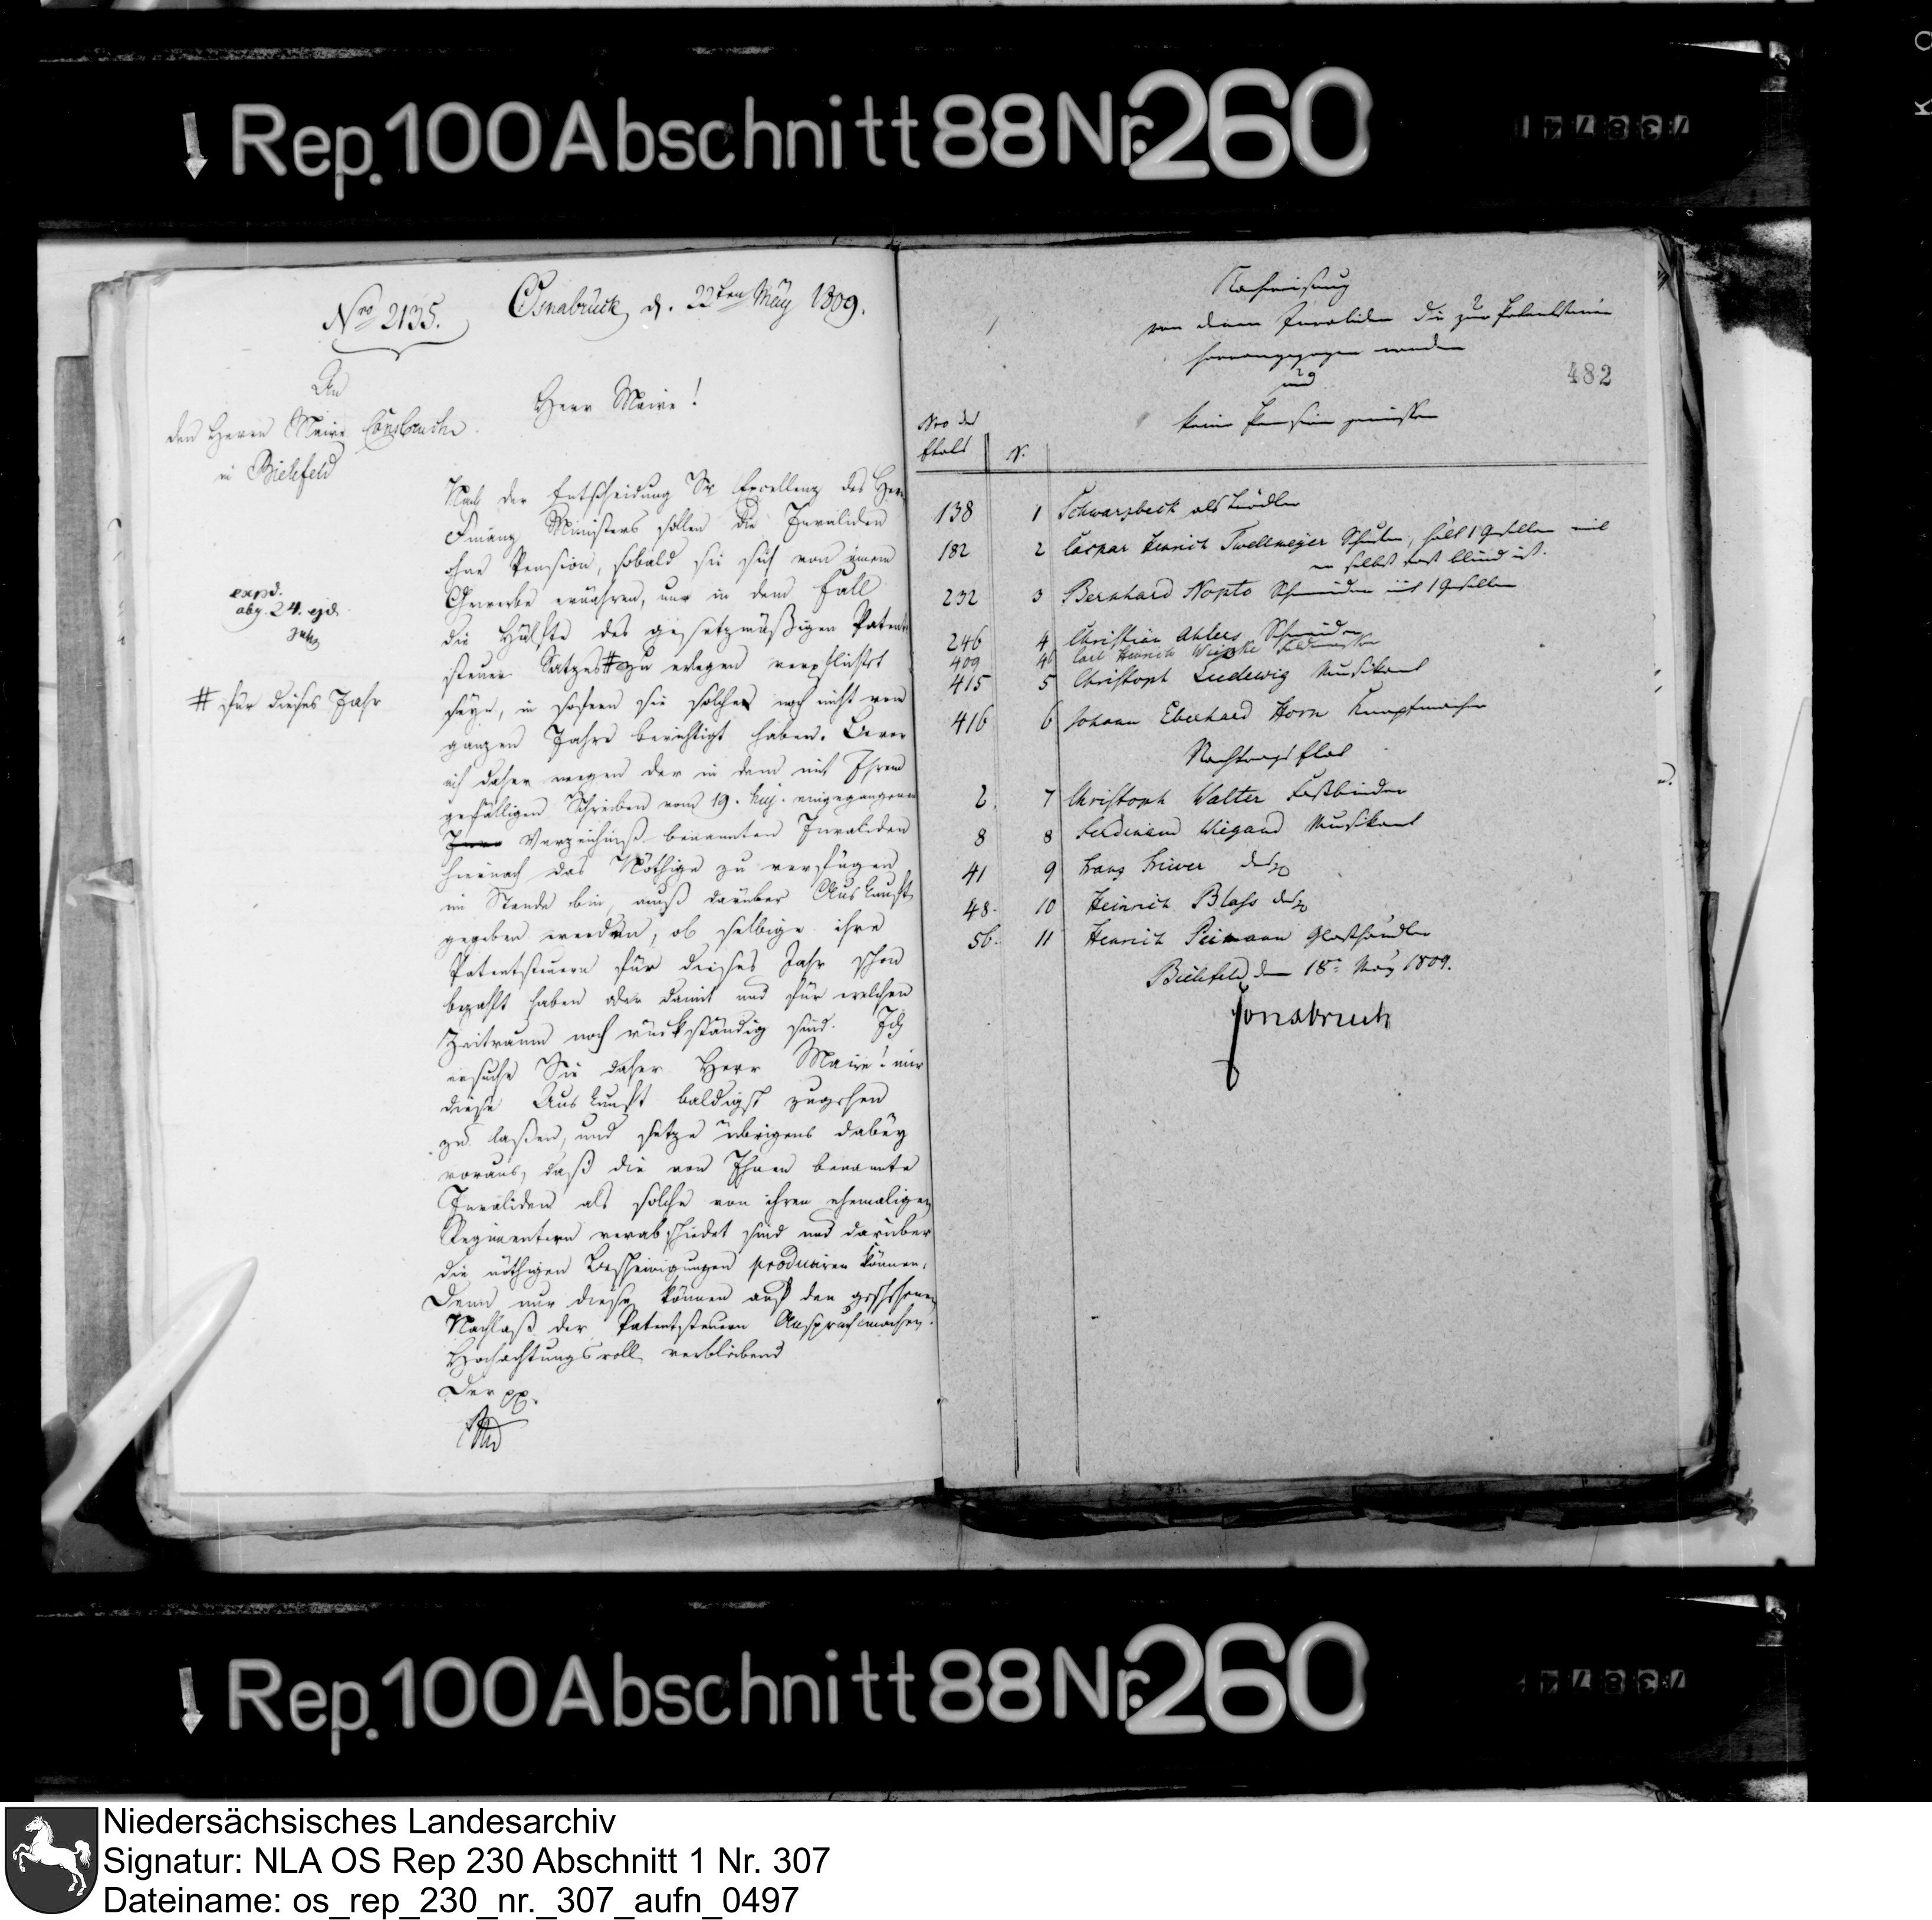 Rep. 100 Abschnitt 88 Nr. 260
Nro 2135.
Osnabrück, d. 22ten May 1809.
An
den Herrn Maire Consbruch
in Bielefeld
Herr Maire!
expd.
abg. 24. ejd.
# für dieses Jahr
Nach der Entscheidung Sr Excellenz des Herrn
Finanz Ministers sollen die Invaliden
ohne Pension, sobald sie sich von einem
Gewerbe ernähren, nur in dem Fall
die Hälfte des gesetzmäßigen Patent
steuer Satzes # zu erlegen verpflichtet
seyn, in sofern sie solche noch nicht vom
ganzen Jahre berichtigt haben. Bevor
ich daher wegen der in dem mit Ihrem
gefälligen Schreiben vom 19. huj. eingegangenen
Verzeichniß benannten Invaliden
hiernach das Nöthige zu verfügen
im Stande bin, muß darüber Auskunft
gegeben werden, ob selbige ihre
Patentsteuern für dieses Jahr schon
bezahlt haben oder damit und für welchen
Zeitraum noch rückständig sind. Ich
ersuche Sie daher Herr Maire! mir
diese Auskunft baldigst zugehen
zu laßen, und setze übrigens dabey
voraus, daß die von Ihnen benannte
Invaliden als solche von ihren ehemaligen
Regimentern verabschiedet sind und darüber
die nöthigen Bescheinigungen produciren können,
Denn nur diese können auf den
Nachlaß der Patentsteuern Anspruch machen.
Hochachtungsvoll verbleibend
Der pp.
Nachweisung
von denen Invaliden die zur Patentsteuer
herangezogen werden
und
keine Pension genießen
482
Nro der
Etats N.
138 1 Schwarzbeck als Trödler
182 2 Caspar Henrich Twellmeyer Schuster, hält 1 Gesellen weil
er selbst fast blind ist.
232 3 Bernhard Nopto Schneider mit 1 Gesellen
246 4 Christian Ahlers Schneider
409 4b Carl Henrich
415 5 Christoph Ludewig Musikant
416 6 Johann Eberhard Horn Knopfmacher
Nachtrags Etat
2. 7 Christoph Walter Faßbinder
8 8 Ferdinand Wiegand Musikant
41 9 Franz
48. 10 Heinrich Blass
56. 11 Henrich Peimann Glashändler
Bielefeld den 18n May 1809.
Consbruch
Rep. 100 Abschnitt 88 Nr. 260
Niedersächsisches Landesarchiv
Signatur: NLA OS Rep 230 Abschnitt 1 Nr. 307
Dateiname: os_rep_230_nr._307_aufn_0497